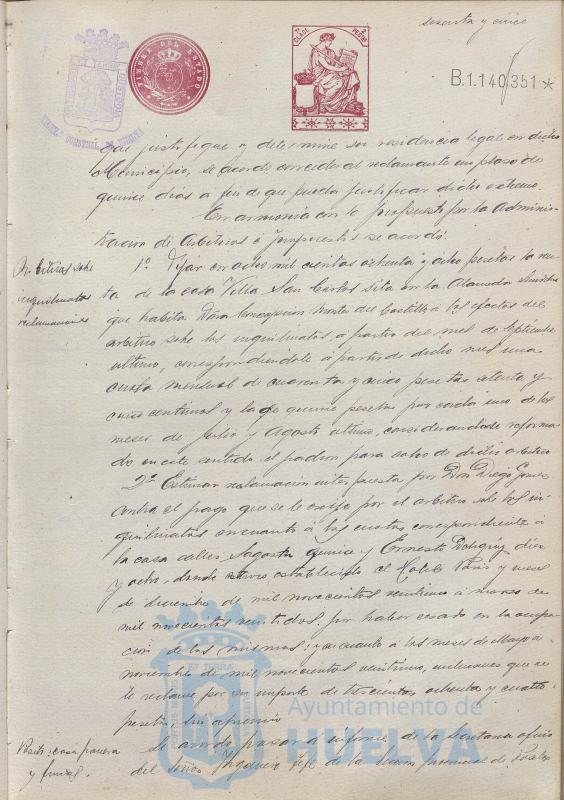 sesenta y cinco
B.1.140,351 *
TIMBRE DEL ESTADO
CLASE
que justifique y determine su residencia legal en dicho
Municipio, se acordó conceder al reclamante un plazo de
quince días a fin de que pueda justificar dicho extremo.
En armonía con lo propuesto por la Adminis-
tración de Arbitrios é Impuestos se acordó:
Arbitrios sobre
inquilinatos
reclamaciones
1º. Fijar en ocho mil cientos ochenta y ocho pesetas la ren-
ta de la casa Villa San Carlos sita en la Alameda
que habita Doña Concepción del Castillo a los efectos del
arbitrio sobre los inquilinatos, a partir del mes de Septiembre
último, correspondiendole a partir de dicho mes una
cuota mensual de cuarenta y cinco pesetas ochenta y
cinco centimos y la de quince pesetas por cada uno de los
meses de Julio y Agosto ultimo, considerandose reforma-
do en este sentido el padrón para cobro de dicho arbitrio
2º Estimar reclamación interpuesta por Don Diego Gomez
contra el pago que se le exije por el arbitrio sobre los in-
quilinatos en cuanto á las cuotas correspondientes á
la casa calles Sagasta quince y Ernesto Deligny diez
y ocho, donde estuvo establecido el Hotel Paris y meses
de diciembre de mil novecientos veintiuno á marzo de
mil novecientos veintidos, por haber cesado en la ocupa-
ción de los mismos; y en cuanto a los meses de Mayo á
noviembre de mil novecientos veintiuno, inclusives que se
le reclama por un importe de trescientas ochenta y cuatro
pesetas, sin apremio
Se acordó pasar a informe de la Secretaría oficio
y frutal.
del Señor Ingeniero Jefe de la Sección provincial de
ET TERRA
Ayuntamiento de
HUELVA